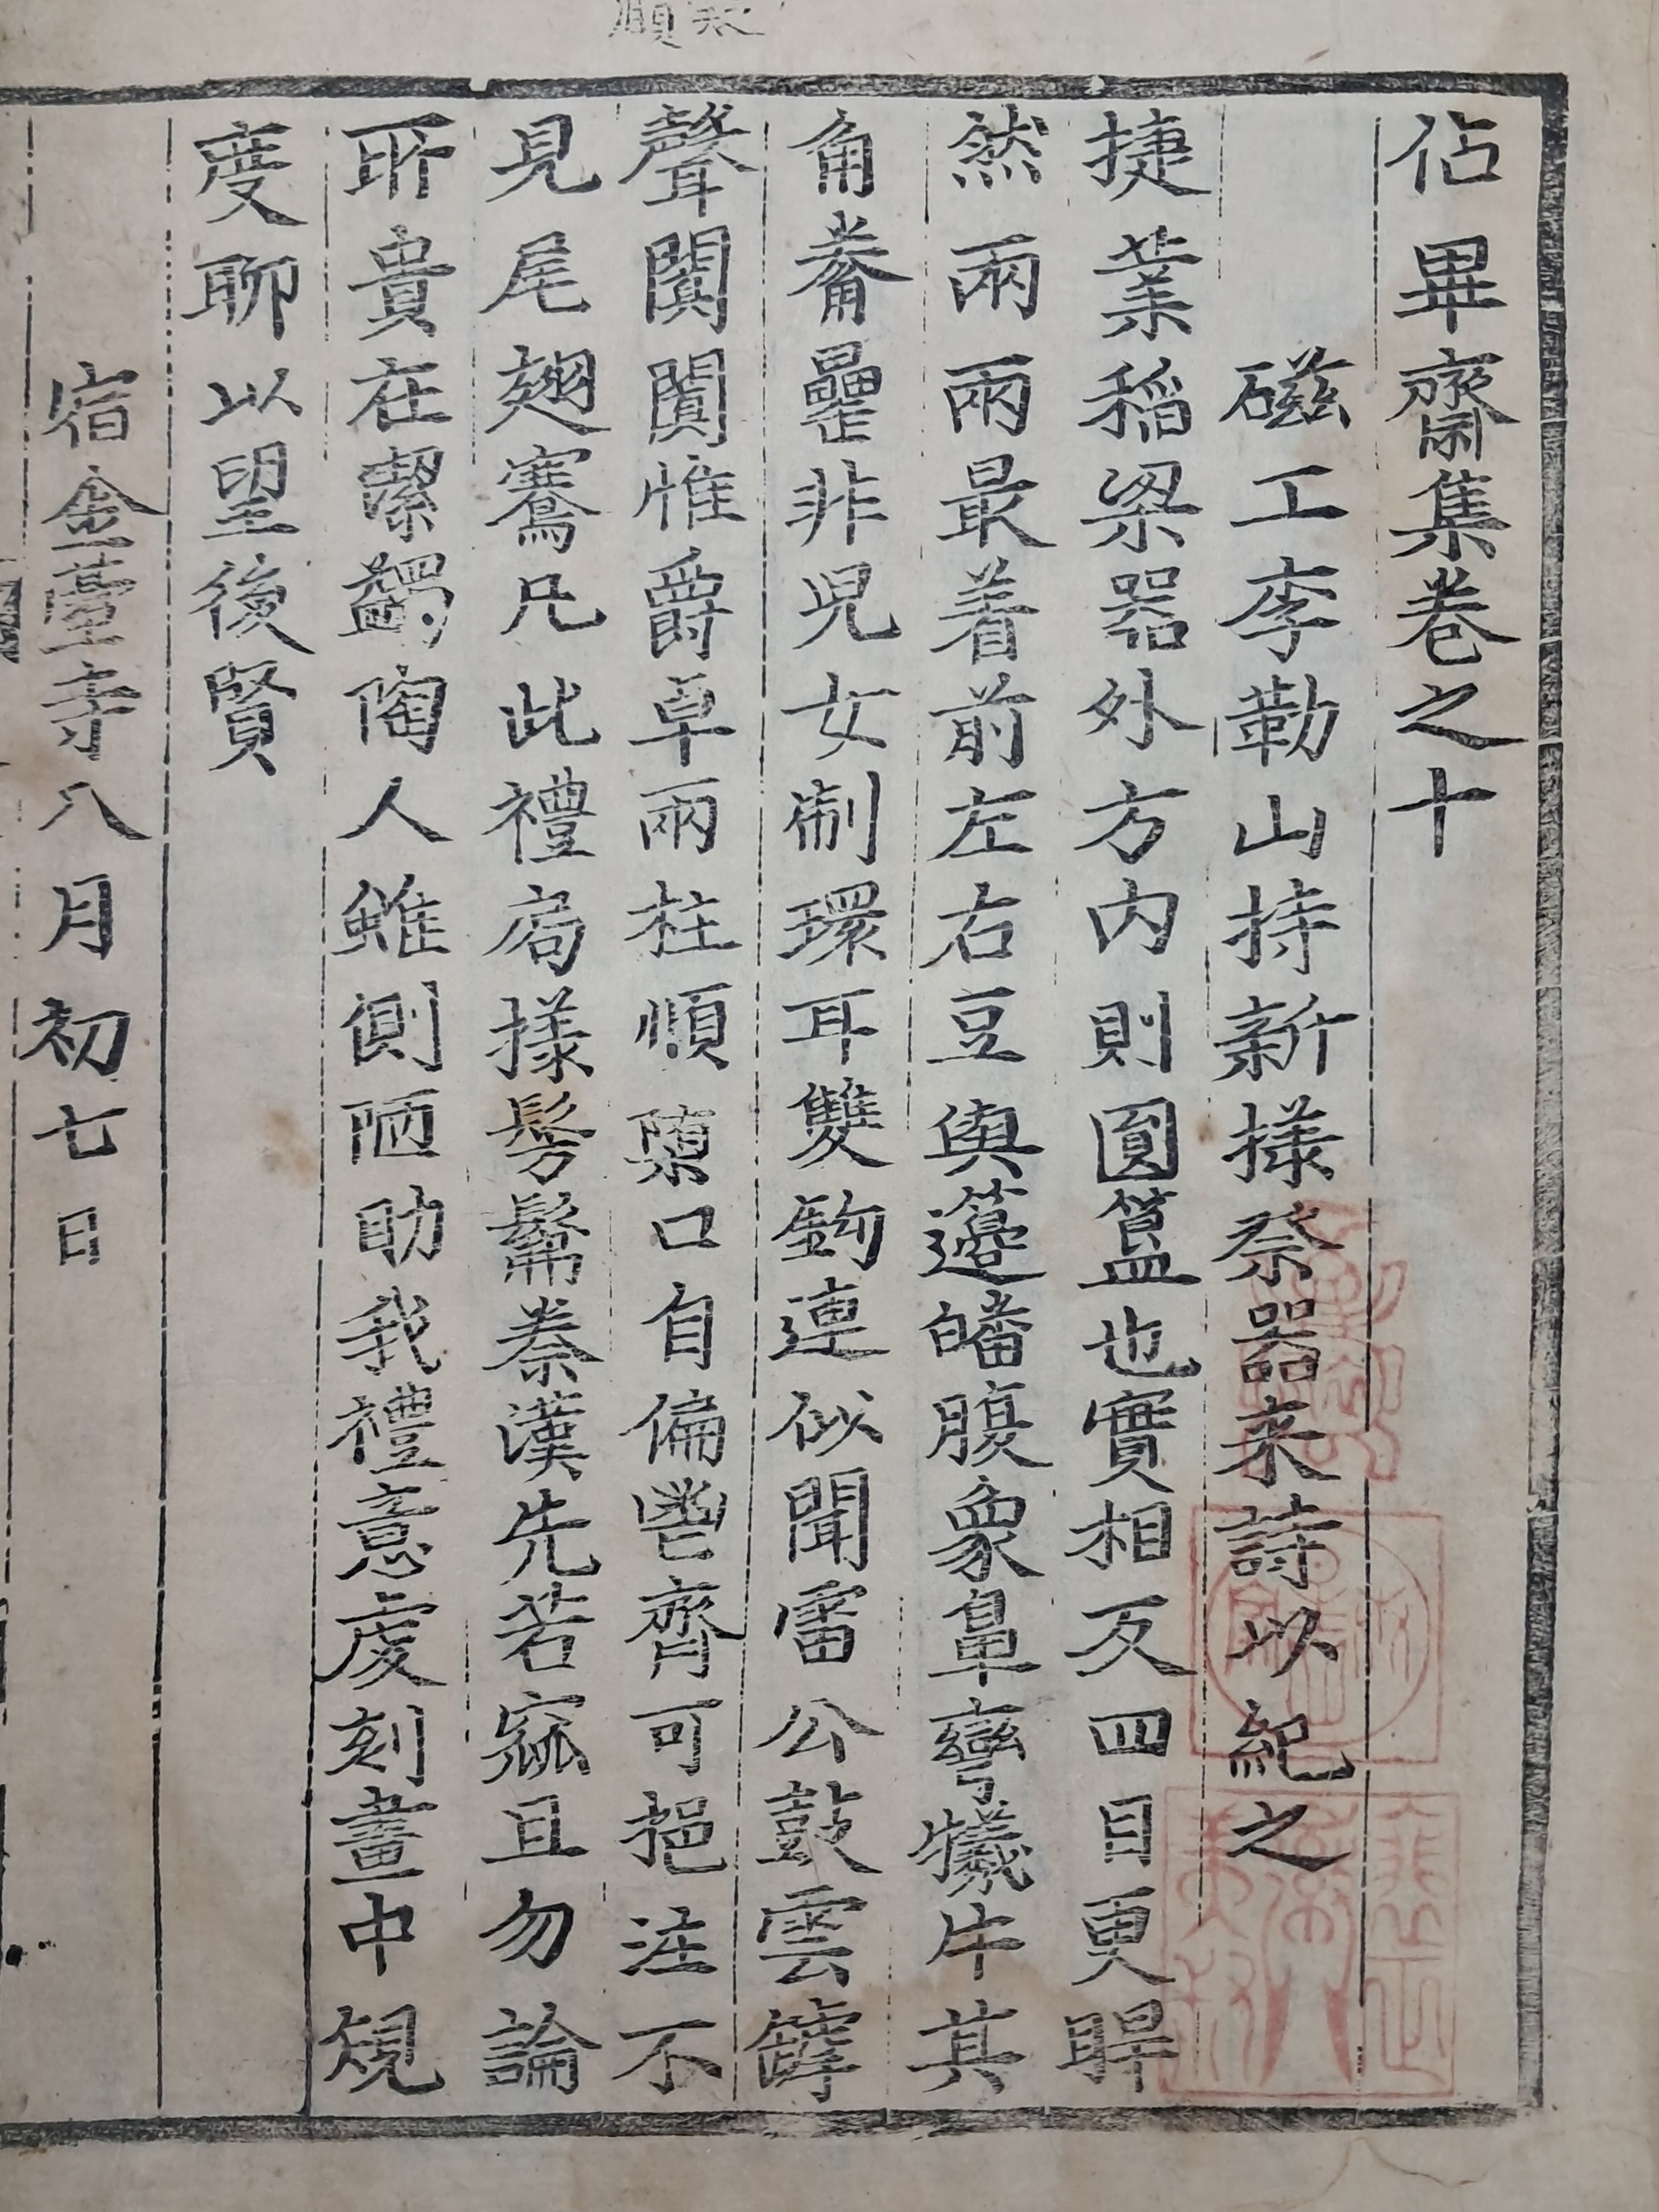 佔畢齋集卷之十
磁工李勒山持新㨾祭器来詩以紀之
捷業稻梁器外方内則圓簋也實相反四目更睅
然兩兩最着前左右豆與籩皤腹象鼻彎犧牛其
角觠罍非兒女制環耳雙鉤連似聞雷公鼓雲䨓
聲闐闐惟爵卓兩柱順口自偏鬯齊可挹注不
見尾翅騫凡此禮局㨾髣髴秦漢先苦窳且勿論
所貴在潔蠲陶人雖側陋助我禮意虔刻畫中規
度聊以望後賢
宿金臺寺八月初七日